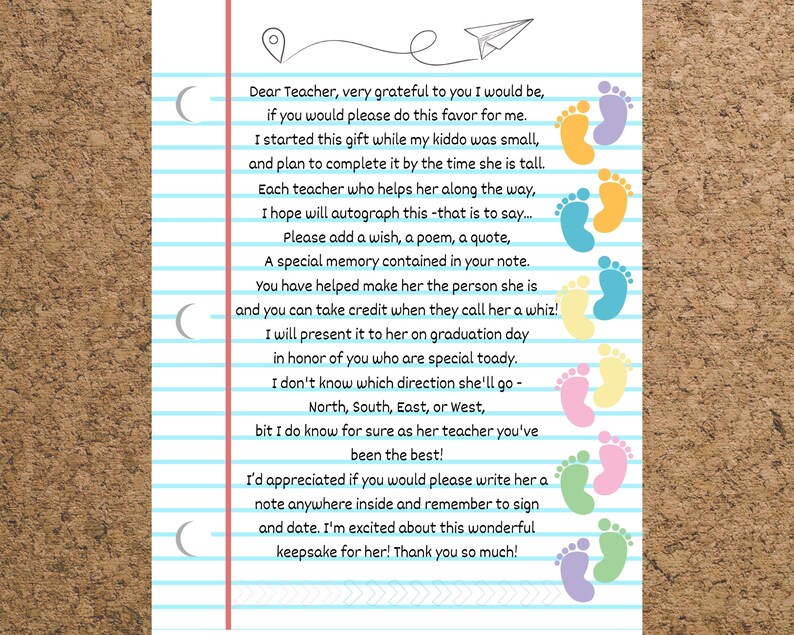 Dear Teacher, very grateful to you I would be,
if you would please do this favor for me.
I started this gift while my kiddo was small,
and plan to complete it by the time she is tall.
Each teacher who helps her along the way,
I hope will autograph this -that is to say...
Please add a wish, a poem, a quote,
A special memory contained in your note.
You have helped make her the person she is
and you can take credit when they call her a whiz!
I will present it to her on graduation day
in honor of you who are special toady.
I don't know which direction she'll go -
North, South, East, or West,
bit I do know for sure as her teacher you've
been the best!
I'd appreciated if you would please write her a
note anywhere inside and remember to sign
and date. I'm excited about this wonderful
keepsake for her! Thank you so much!